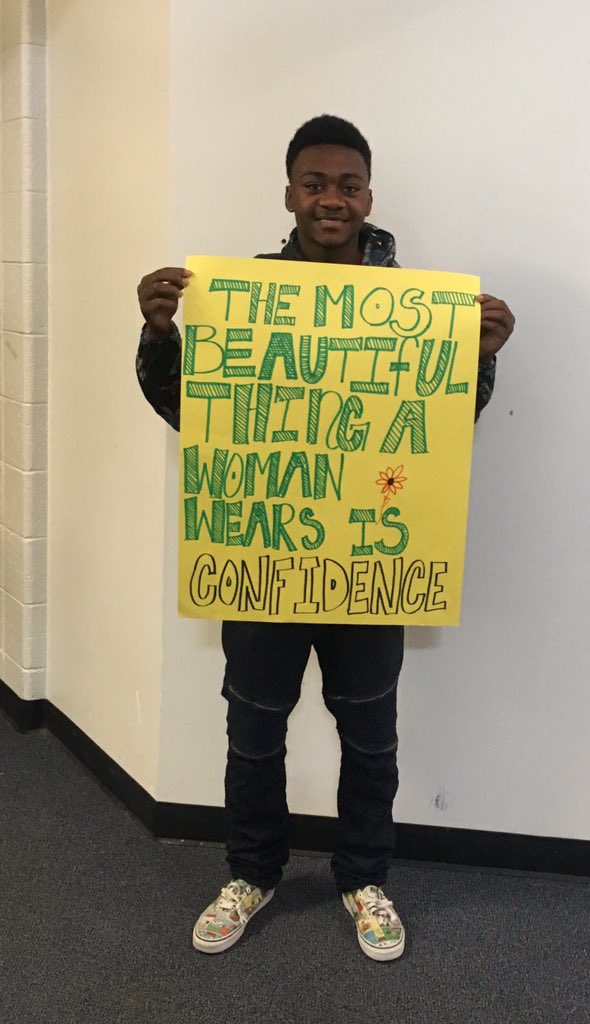 THE MOST
BEAUTIfUL
THINg A
WOMAN
WEARS IS
CONFIDENCE